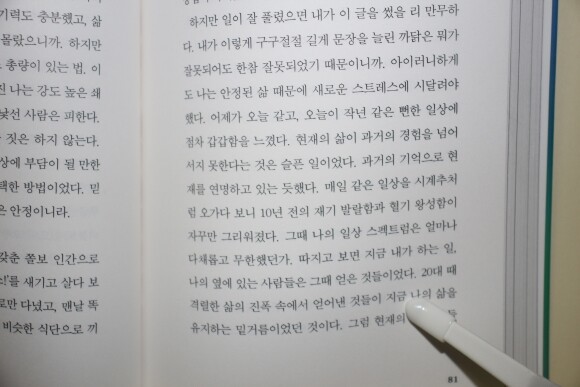 기력도 충분했고, 삶
몰랐으니까. 하지만
총량이 있는 법. 이
진 나는 강도 높은 쇄
낯선 사람은 피한다.
짓은 하지 않는다.
상에 부담이 될 만한
택한 방법이었다. 믿
은 안정이니라.
갖춘 쫄보 인간으로
소!'를 새기고 살다 보
로만 다녔고, 맨날 똑
비슷한 식단으로 끼
하지만 일이 잘 풀렸으면 내가 이 글을 썼을 리 만무하
다. 내가 이렇게 구구절절 길게 문장을 늘린 까닭은 뭐가
잘못되어도 한참 잘못되었기 때문이니까. 아이러니하게
도 나는 안정된 삶 때문에 새로운 스트레스에 시달려야
했다. 어제가 오늘 같고, 오늘이 작년 같은 뻔한 일상에
점차 갑갑함을 느꼈다. 현재의 삶이 과거의 경험을 넘어
서지 못한다는 것은 슬픈 일이었다. 과거의 기억으로 현
재를 연명하고 있는 듯했다. 매일 같은 일상을 시계추처
럼 오가다 보니 10년 전의 재기 발랄함과 혈기 왕성함이
자꾸만 그리워졌다. 그때 나의 일상 스펙트럼은 얼마나
다채롭고 무한했던가. 따지고 보면 지금 내가 하는 일,
나의 옆에 있는 사람들은 그때 얻은 것들이었다. 20대 때
격렬한 삶의 진폭 속에서 얻어낸 것들이 지금 나의 삶을
유지하는 밑거름이었던 것이다. 그럼 현재의
81